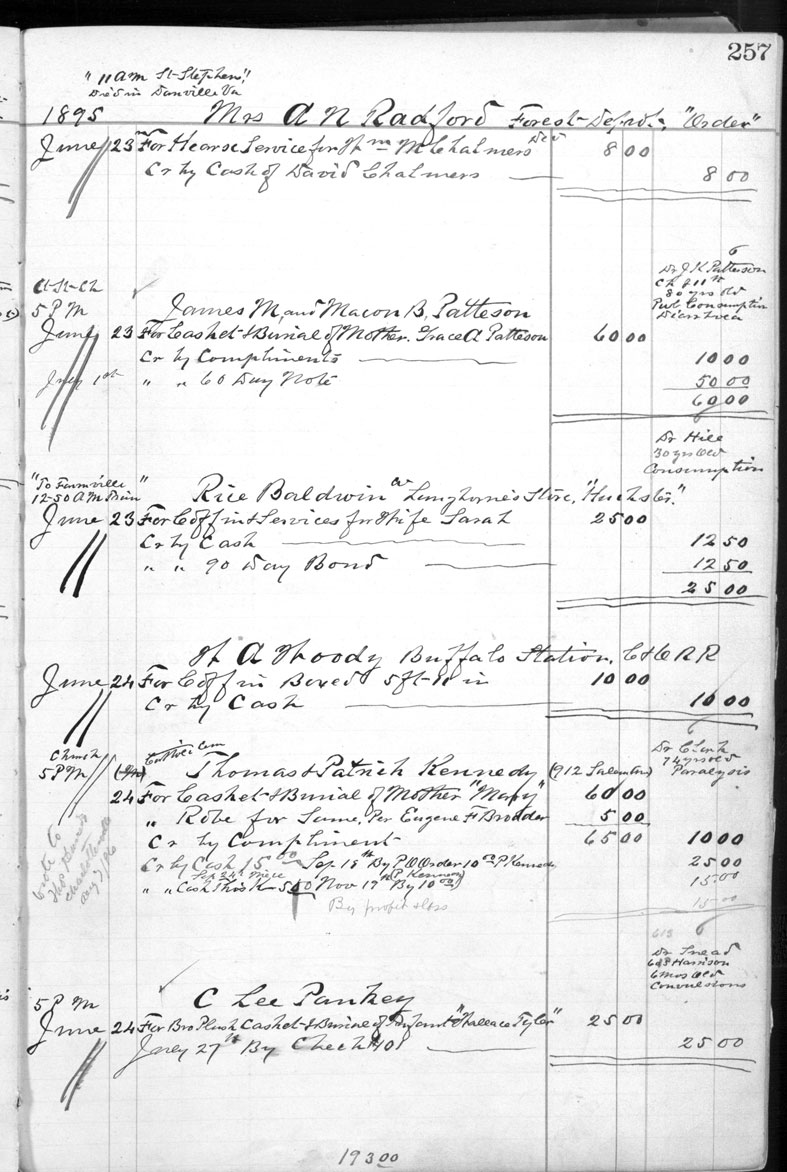 257
" 11 AM St-Stephens"
Died in Danville Va
1895 Mrs A N Radford Forest Depot, "Order"
June 23 For Hearse Service for Wm M Chalmers Decd 8 00
Cr by Cash of David Chalmers 8 00
6
Dr J K Patterson
Ch 811
80 yrs old
Pul Consumption
Diarrhoea
At St-Ch
5 PM James M, and Macon B, Patteson
June 23 For Casket & Burial of Mother. Grace A Patteson 60 00
Cr by Compliments 10 00
July 1st " " 60 Day Note 50 00
60 00
Dr Hill
30 yrs old
Consumption
"To Farmville"
12-50 AM Train Rice Baldwin Langhorne's Store, "Huckster."
June 23 For Coffin & Services for Wife Sarah 25 00
Cr by Cash 12 50
" " 90 Day Bond 12 50
25 00
W A Woody Buffalo Station, C & O RR
June 24 For Coffin Boxed 5 ft-10 in 10 00
Cr by Cash 10 00
6
Dr Clark
74 yrs old
Paralysis
Church
5 PM Thomas & Patrick Kennedy (912
24 For Casket & Burial of Mother "Mary" 60 00
" Robe for Same, Per Eugene F Brodder 5 00
Cr by Compliment 65 00 10 00
Cr by Cash 15 00 Sep 18th By P O Order 10 00 P Kennedy 25 00
" " Cash 5 00 Nov 19th By 10 00 (P Kennedy) 15 00
15 00
By profit & loss
Wrote to
Charlottesville
613 6
Dr Snead
Harrison
6 mos old
Convulsions
5 P M C Lee Pankey
June 24 For Bro Plush Casket & Burial of Infant "Wallace Tyler" 25 00
July 27th By Check 25 00
193 00